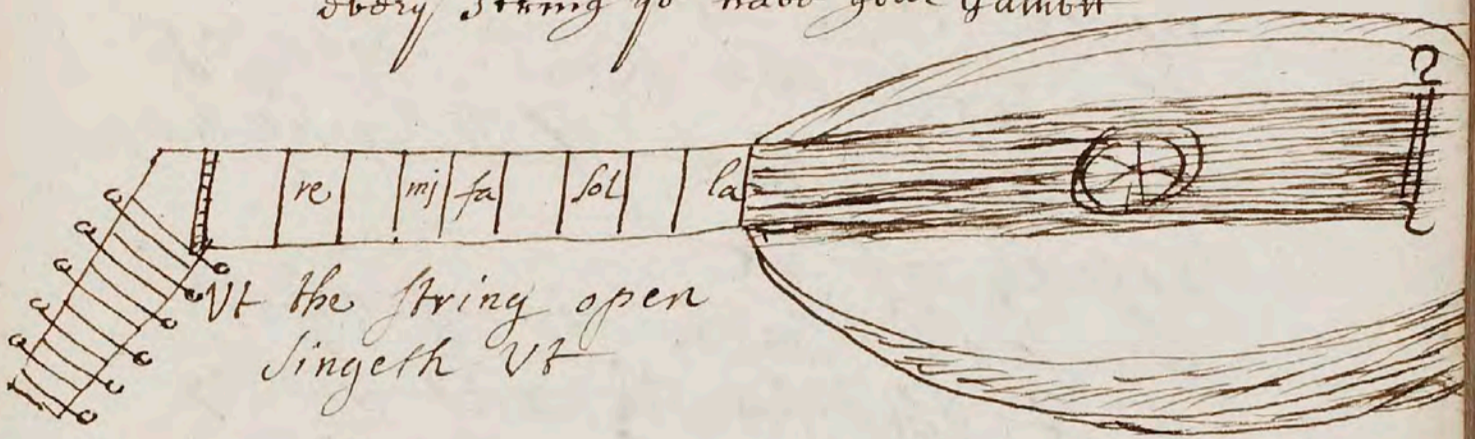 every string yo have your Gamott
re mj fa sol la
Vt the string open
singeth Vt